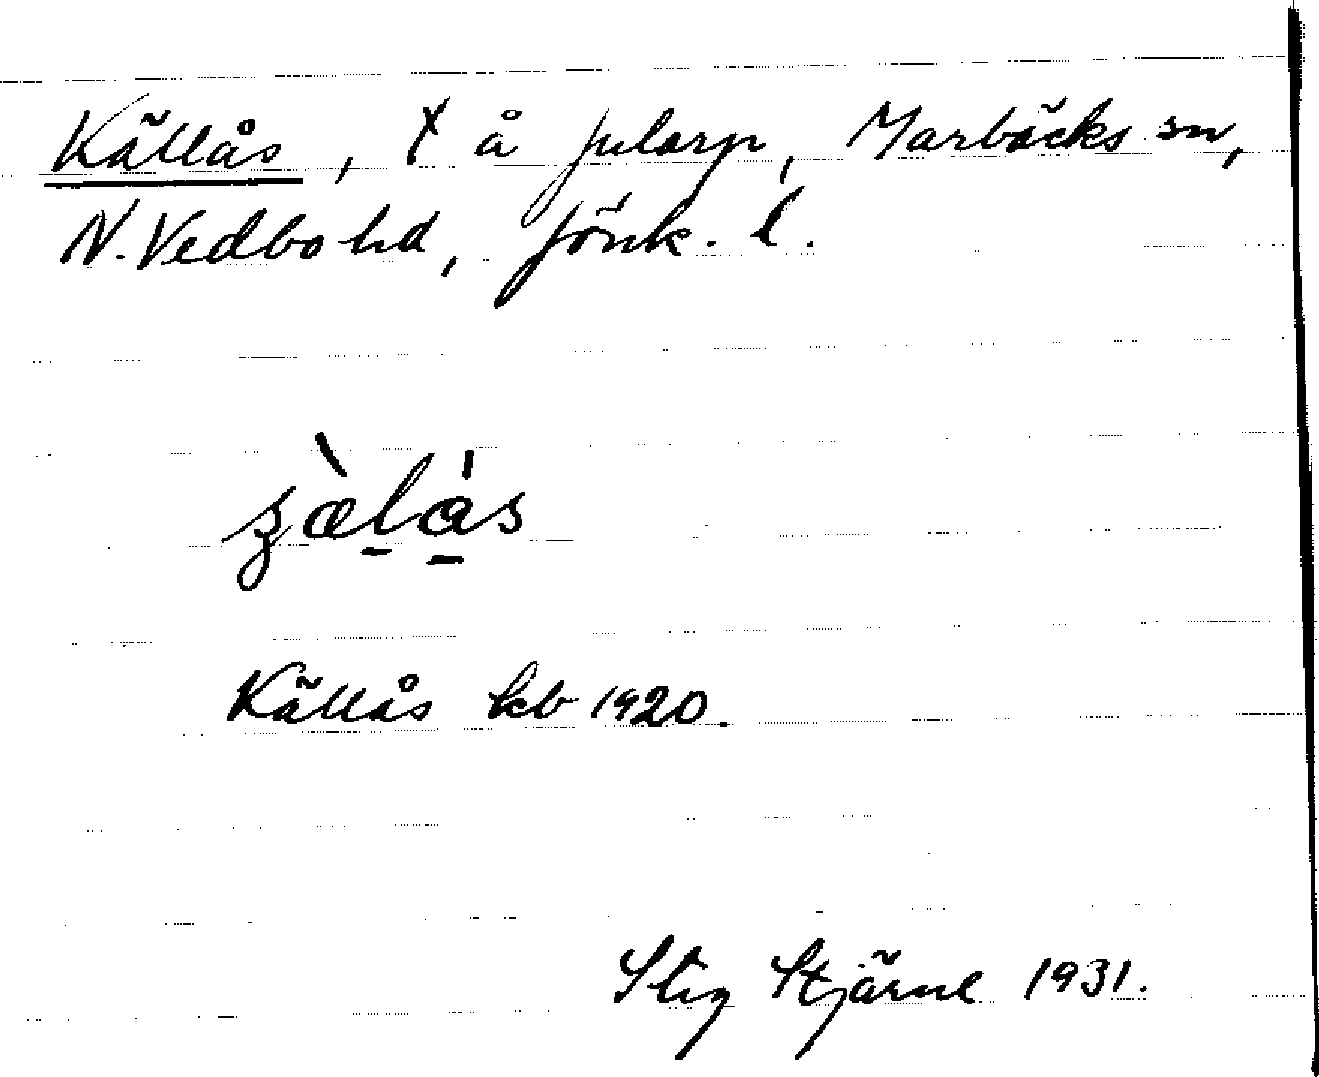 Källås, † å Jularp, Marbäcks sn,
N. Vedbo hd, Jönk. l.
Källås kb 1920.
Stig Stjärne 1931.